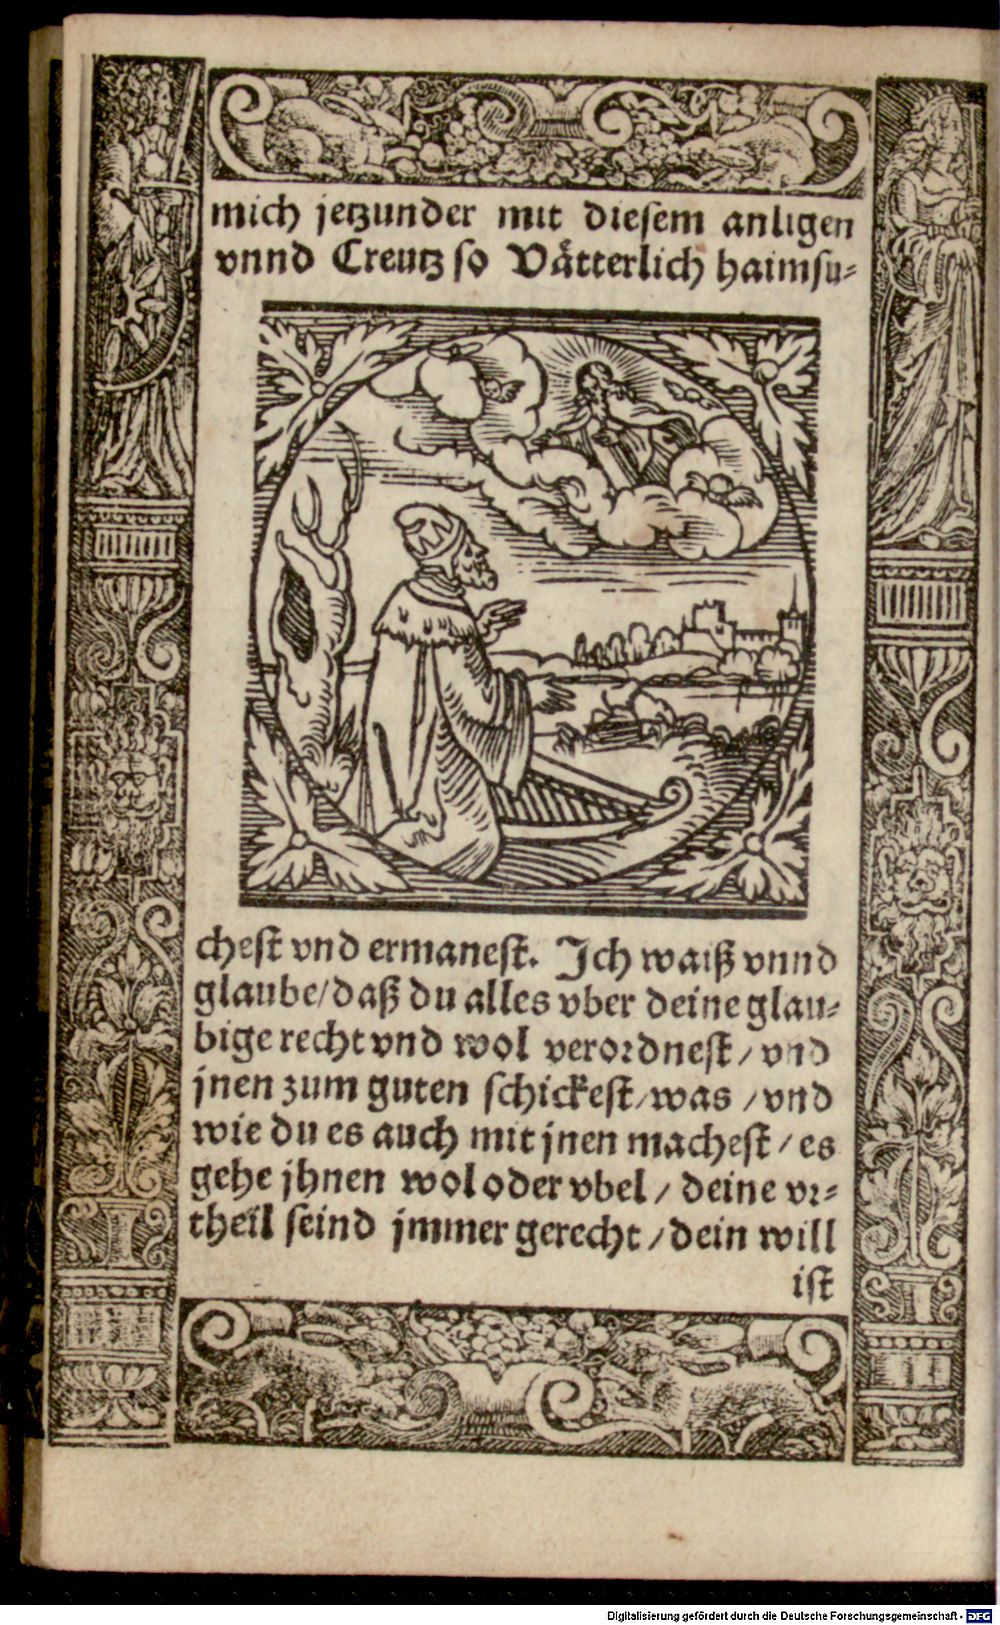 mich jetzunder mit diesem anligen
vnnd Creutz so Våtterlich haimsu⸗
chest vnd ermanest. Ich waiß vnnd
glaube/ daß du alles vber deine glau⸗
bige recht vnd wol verordnest / vnd
jnen zum guten schickest/ was / vnd
wie du es auch mit jnen machest / es
gehe jhnen wol oder vbel / deine vr⸗
theil seind jmmer gerecht / dein will
ist
Digitalisierung gefördert durch die Deutsche Forschungsgemeinschaft - DFG